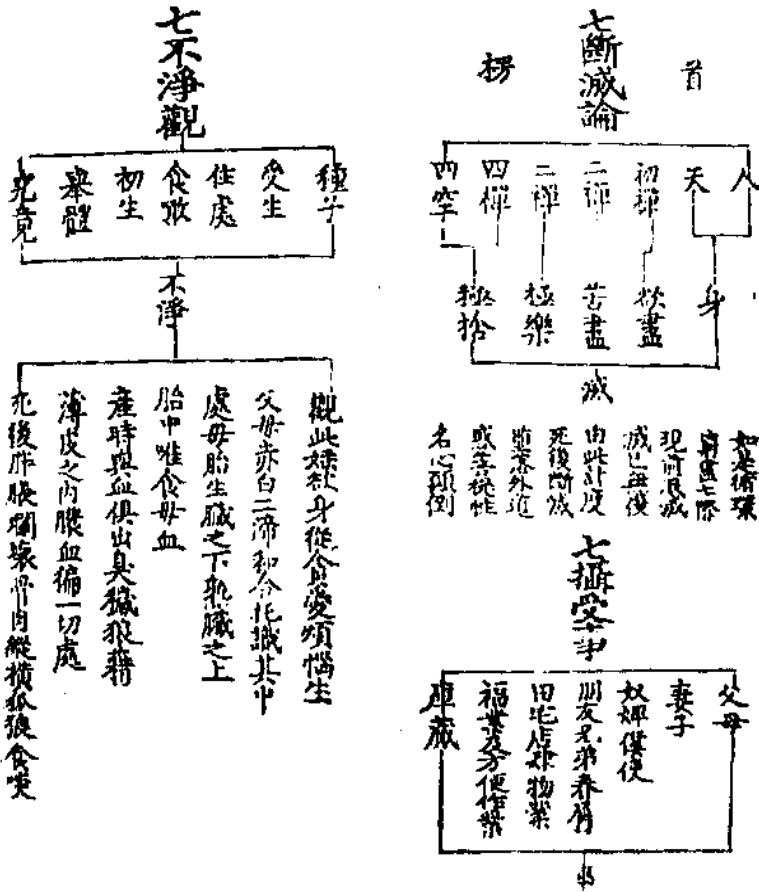 首
楞
七斷滅論
人
天
初禪
二禪
二禪
四禪
四空
身
欲盡
苦盡
極樂
極捨
滅
如是循環
窮盡七際
現前銷滅
滅已無復
由此計度
死後斷滅
墮落外道
惑菩提性
名心顛倒
七攝受事
父母
妻子
奴婢僕使
朋友兄弟眷屬
田宅店肆物業
福業及方便作業
庫藏
事
七不淨觀
種子
受生
住處
食噉
初生
舉體
究竟
不淨
觀此婬欲身從貪愛煩惱生
父母赤白二渧和合托識其中
處母胎生臟之下熟臟之上
胎中唯食母血
產時與血俱出臭穢狼藉
薄皮之內膿血徧一切處
死後胮脹爛壞骨肉縱橫狐狼食噉